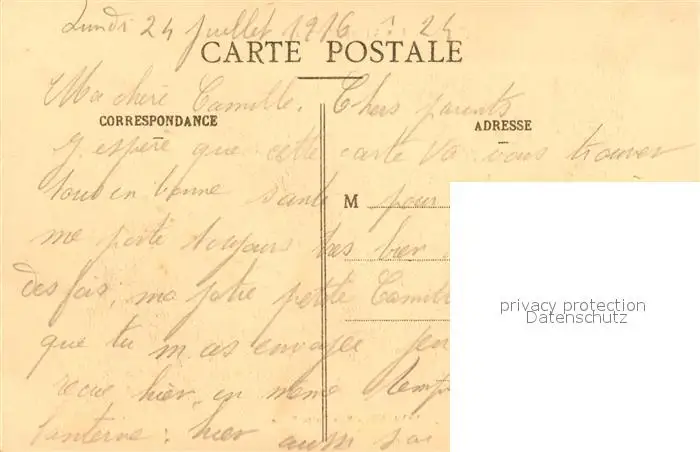 Lundi 24 juillet 1916 24
CARTE POSTALE
Ma chère Camille. Chers parents
CORRESPONDANCE
ADRESSE
J espère que cette carte va vous trouver
tous en bonne santé M pour
me porte toujours très bien
des fois, ma petite Camille
que tu m as envoyée
reçue hier en même temps
hier aussi j ai
privacy protection
Datenschutz